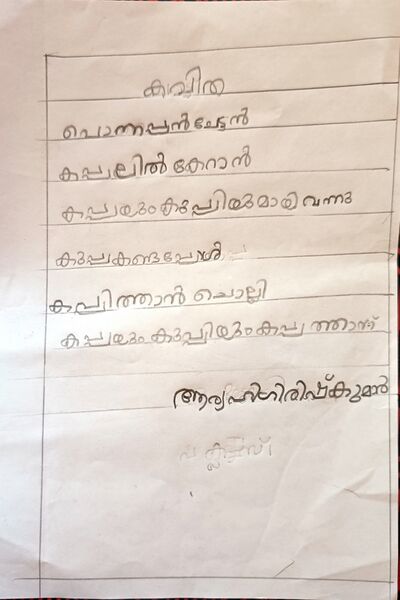 കവിത
പൊന്നപ്പൻ ചേട്ടൻ
കപ്പലിൽ കേറാൻ
കപ്പയും കുപ്പിയുമായി വന്നു
കുപ്പകണ്ടപ്പോൾ
കപ്പിത്താൻ ചൊല്ലി
കപ്പയും കുപ്പിയും കപ്പ ത്താണ്
ഗിരിഷ്കുമാർ